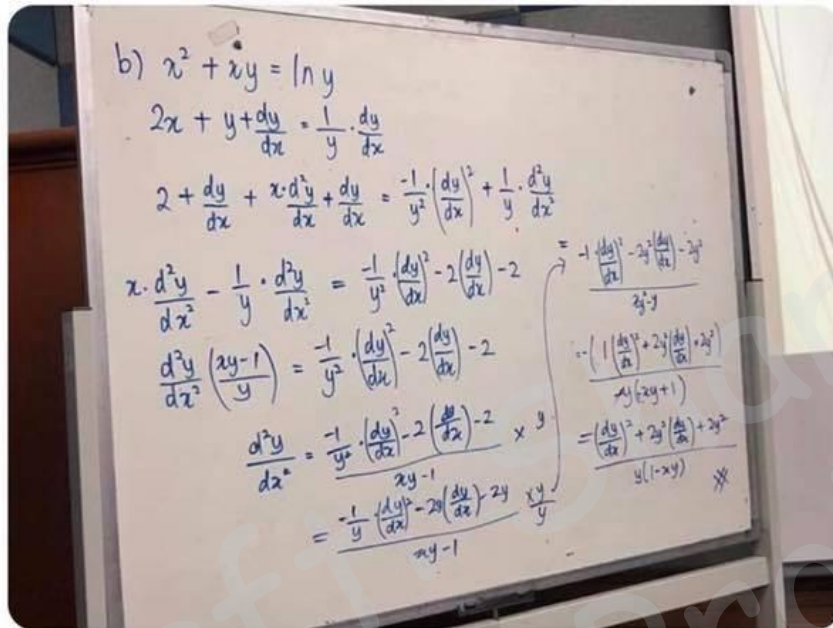 b) x² + xy = ln y
2x + y + dy/dx = 1/y · dy/dx
2 + dy/dx + x·d²y/dx + dy/dx = -1/y² · (dy/dx)² + 1/y · d²y/dx²
x · d²y/dx² - 1/y · d²y/dx² = -1/y² · (dy/dx)² - 2(dy/dx) - 2
d²y/dx² ((xy-1)/y) = -1/y² · (dy/dx)² - 2(dy/dx) - 2
d²y/dx² = (-1/y² · (dy/dx)² - 2(dy/dx) - 2)/(xy-1) × y
= (-1/y · (dy/dx)² - 2y(dy/dx) - 2y)/(xy-1) × y/y
= (-1·(dy/dx)² - 2y²(dy/dx) - 2y²)/
= -(1(dy/dx)² + 2y²(dy/dx) + 2y²)/(-y(-xy+1))
= ((dy/dx)² + 2y²(dy/dx) + 2y²)/(y(1-xy))